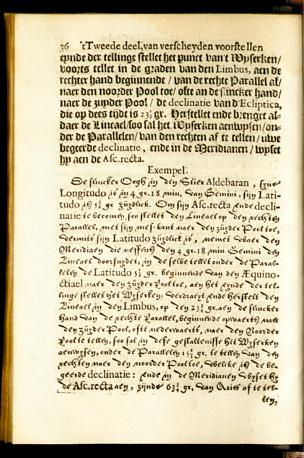 36 'tTweede deel, van verscheyden voorstellen
eynde der tellinge stellet het punct van 't Wyserken /
voorts tellet in de graden van den Limbus, aen de
rechter hand beginnende / van de rechte Parallel af
naer den noorder Pool toe / ofte an de slincker hand /
naer de zuyder Pool / de declinatie van d'Ecliptica,
die op dees tijdt is 23½ gr. Herstellet ende brenget al-
daer de Lineael / soo sal het Wyserken aenwysen / on-
der de Parallelen / van den rechten af te tellen / uwe
begeerde declinatie, ende in de Meridianen / wyset
hy aen de Asc. recta.
Exempel.
De slincker Oogh in den Stier Aldebaran,
Longitudo is in 4 gr. 18 min. van Gemini, sijn Lati-
tudo is 5½ gr. zuydlick. Om sijn Asc. recta ende decli-
natie te becomen, soo stellet den Lineael op den rechten
Parallel, met sijn naer den zuyder Pool toe,
dermits sijn Latitudo zuydlick is, neemt daer den
Meridiaen die 4 gr. 18 min. Gemini den
Lineael doorsnydet, in de selve tellet onder de Paral-
lelen de Latitudo 5½ gr. beginnende van den Æquino-
ctiael naer den zuyder Pool toe, aen het eynde der tel-
linge stellet het Wyserken: ende herstelt den
Lineael in den Limbus, op den 23½ gr. aen de slincker
hand van de rechte Parallel, beginnende naer
den zuyder Pool, ofte nederwaerts, naer den Noorder
Pool te tellen, soo sal in dese het Wyserken
aenwysen, onder de Parallelen 15¾ gr. te tellen van den
rechten naer den noorder Pool toe, is de be-
geerde declinatie: Ende in de Meridianen wyset hy
de Asc. recta aen, zijnde 63¾ gr. van Aries af te tel-
len,